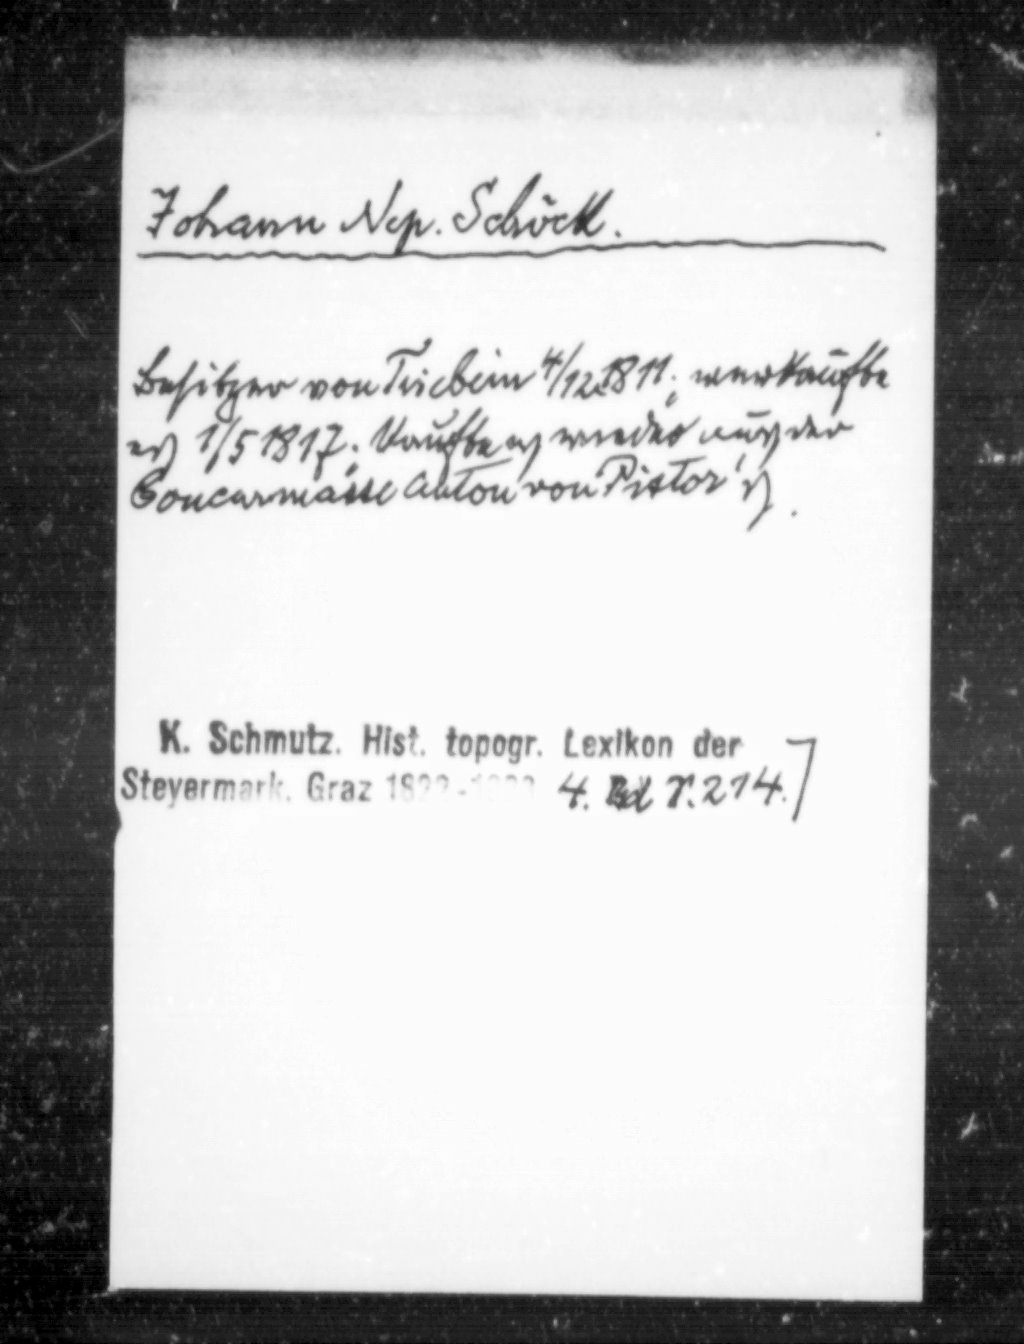 Johann Nep. Schöckl.
Besitzer von Triebein 4/12 1811; verkaufte
es 1/5 1817; kaufte es wieder aus der
Concursmasse Anton von Pistor's.
K. Schmutz. Hist. topogr. Lexikon der
Steyermark. Graz 1822- 4. Bd S. 214.]